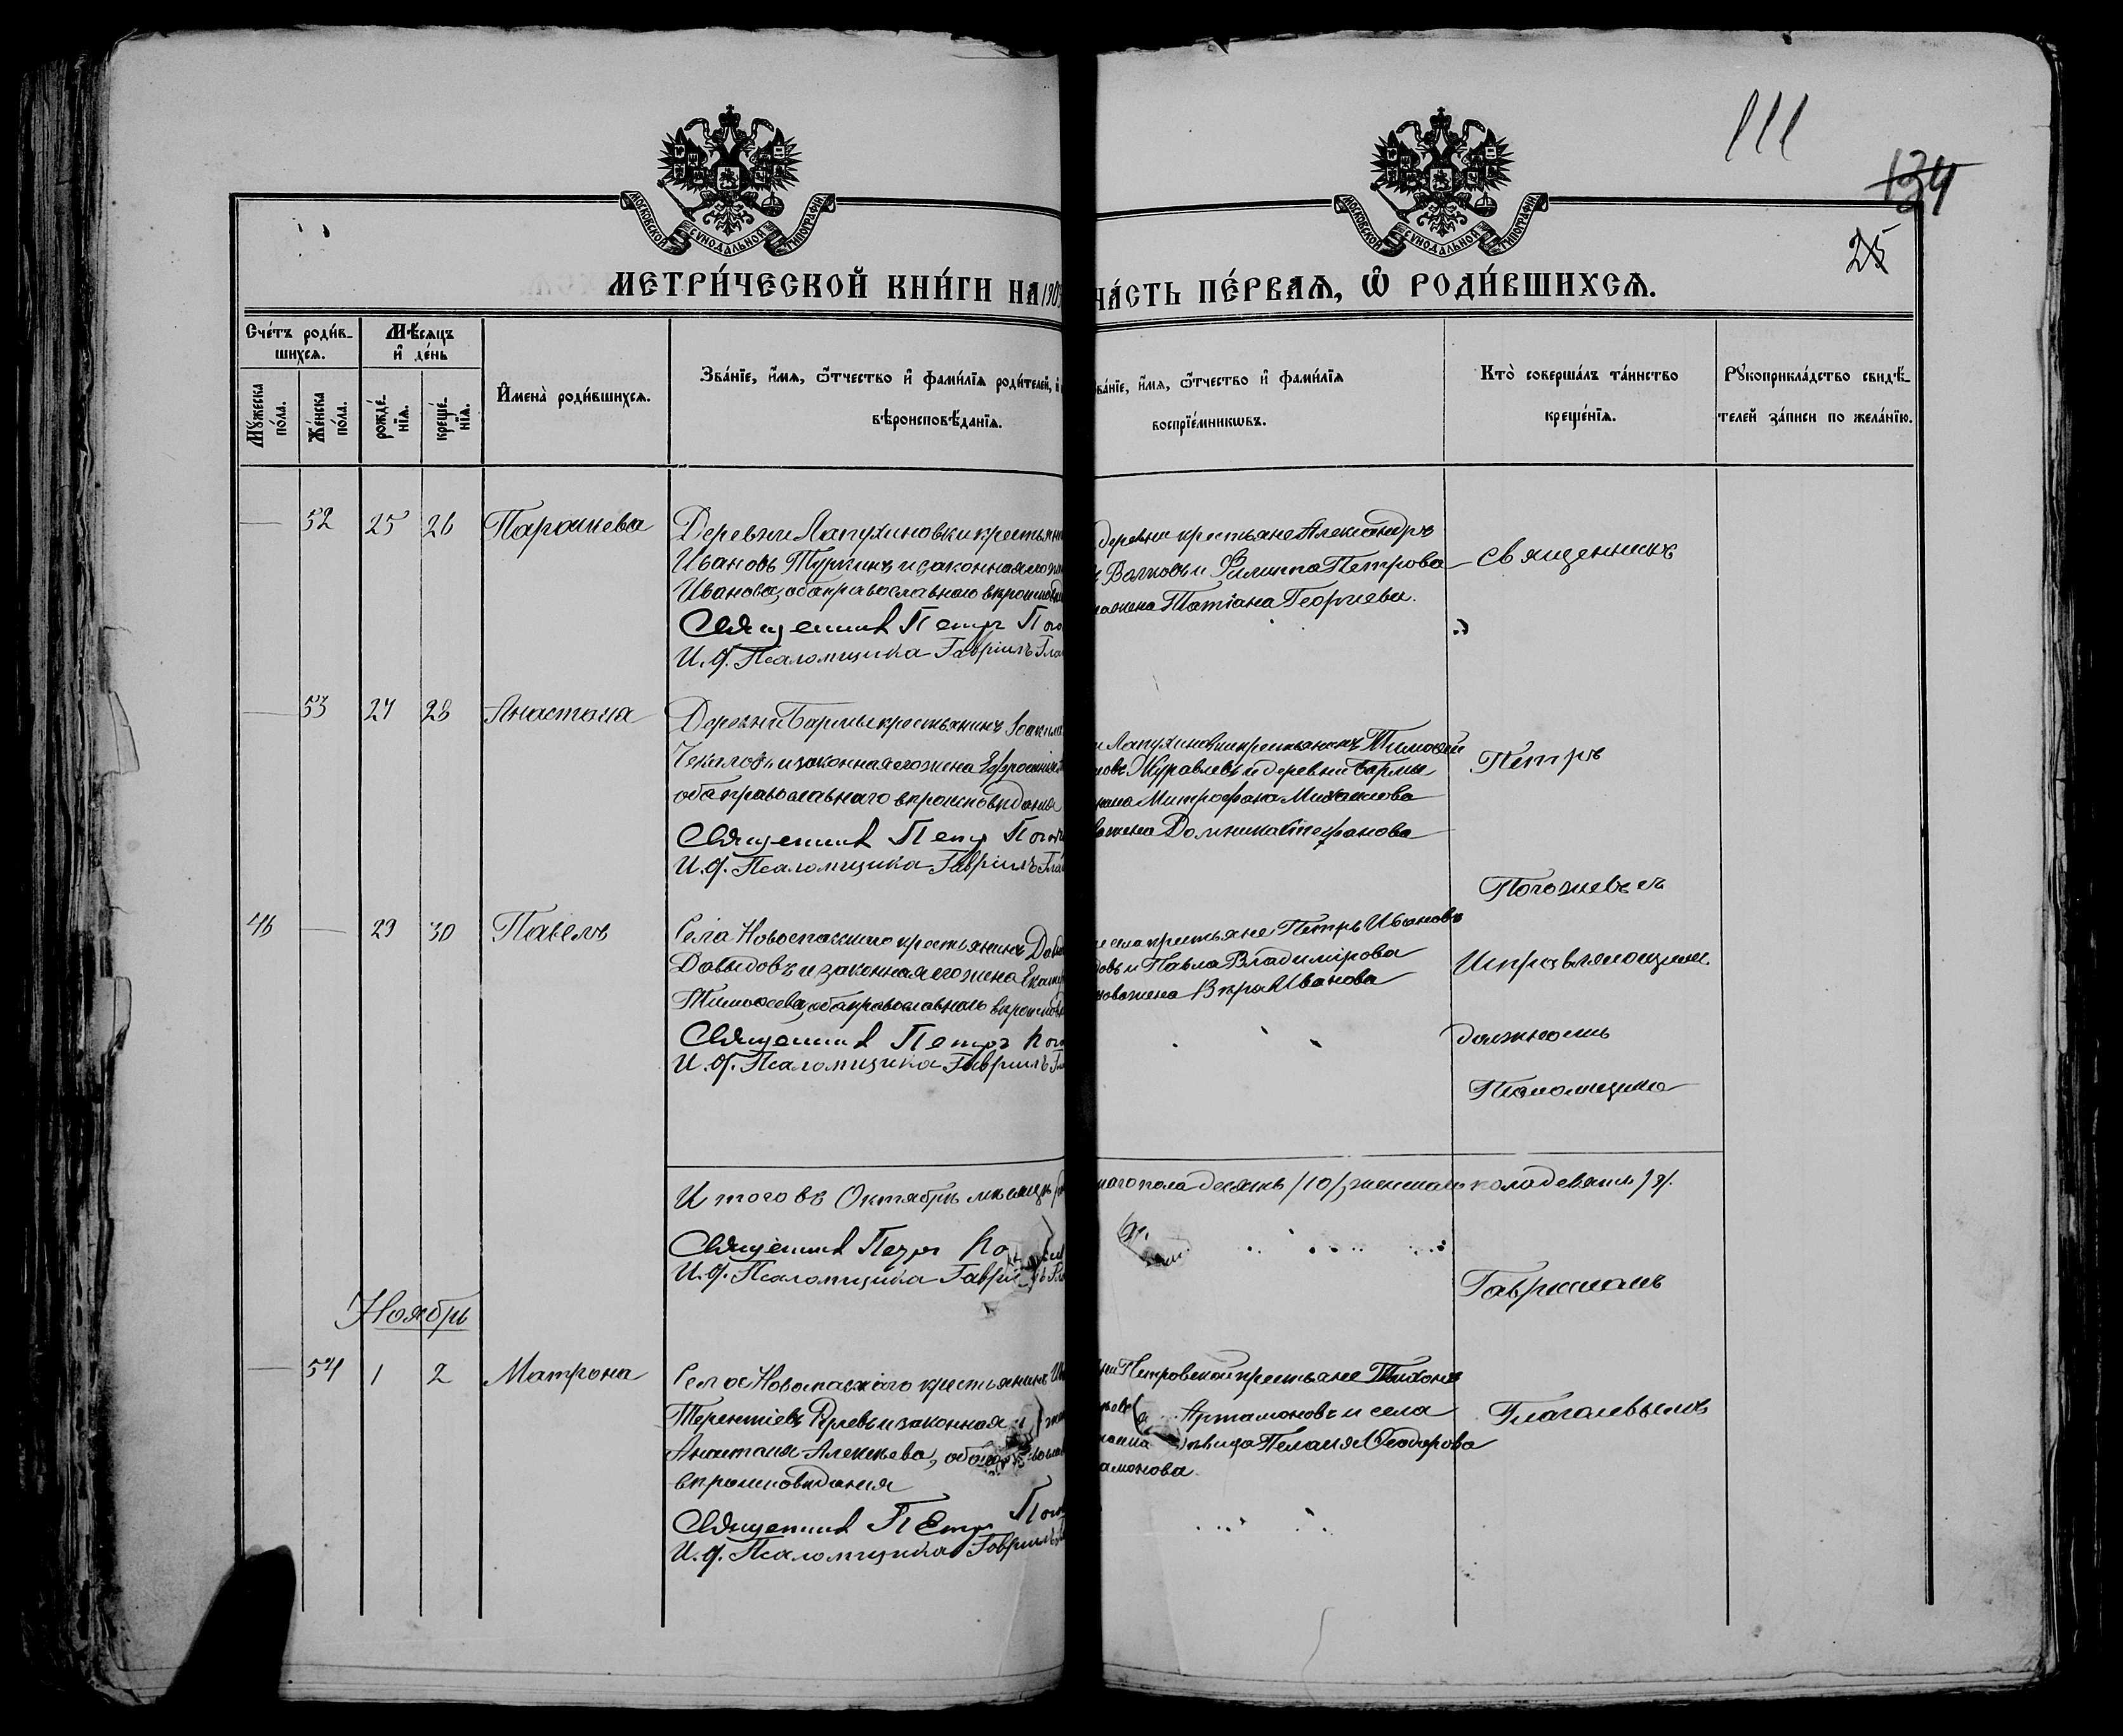 111
134
25
МОСКОВСКОЙ СУНОДАЛЬНОЙ ТИПОГРАФІИ
МОСКОВСКОЙ СУНОДАЛЬНОЙ ТИПОГРАФІИ
МЕТРИ́ЧЕСКОЙ КНИ́ГИ НА 190
ЧА́СТЬ ПЕ́РВАѦ, Ѡ РОДИ́ВШИХСѦ.
Сче́тъ роди́в-
шихсѧ.
Мѣ́сѧцъ
и҆ де́нь
Мꙋ́жеска по́ла.
Же́нска по́ла.
рожде́-
нїѧ.
креще́-
нїѧ.
И҆мена̀ роди́вшихсѧ.
Зва́нїе, и҆́мѧ, ѻ҆́тчество и҆ фами́лїѧ роди́телей,
вѣроисповѣ́данїѧ.
ва́нїе, и҆́мѧ, ѻ҆́тчество и҆ фами́лїѧ
воспрїе́мникѡвъ.
Кто̀ соверша́лъ та́инство
креще́нїѧ.
Рꙋкоприкла́дство свидѣ́-
телей за́писи по жела́нїю.
— 52 25 26 Параскева
Деревни Лапухиновки крестьянин
Ивановъ Туркинъ и законная его
Иванова, оба православнаго вѣроисповѣд
Священникъ Петръ Пого
И. д. Псаломщика Гавріилъ Гла
деревни крестьяне Александръ
Волковъ и Филиппа Петрова
жена Татіана Георгіева.
Священникъ
— 53 27 28 Анастасія
Деревни Бармы крестьянинъ Іоаким
Чекаловъ и законная его жена Евфросинія
оба православнаго вѣроисповѣданія
Священникъ Петръ Пого
И. д. Псаломщика Гавріилъ Глаг
Лапухиновки крестьянинъ Тимоѳей
Журавлевъ и деревни Бармы
Митрофана Михаилова
жена Домника Стефанова
Петръ
Погожевъ съ
46 — 29 30 Павелъ
Села Новоспасскаго крестьянинъ Дав
Давыдовъ и законная его жена Екате
Тимоѳеева, оба православнаго вѣроисповѣ
Священникъ Петръ Пого
И. д. Псаломщика Гавріилъ Гла
села крестьяне Петръ Ивановъ
довъ и Павла Владимірова
жена Вѣра Иванова
Исправляющимъ
должность
Псаломщика
Итого въ Октябрѣ мѣсяцѣ
наго пола десять /10/, женскаго пола девять /9/.
Священникъ Петръ По
И. д. Псаломщика Гавріилъ
Гавріиломъ
Ноябрь
— 54 1 2 Матрона
Села Новоспасскаго крестьянинъ
Терентіевъ и законная
Анастасія Алексѣева, оба
вѣроисповѣданія
Священникъ Петръ Пого
И. д. Псаломщика Гавріилъ
Петровской крестьяне Тихонъ
Артамоновъ и села
дѣвица Пелагія Ѳеодорова
амонова.
Глаголевымъ